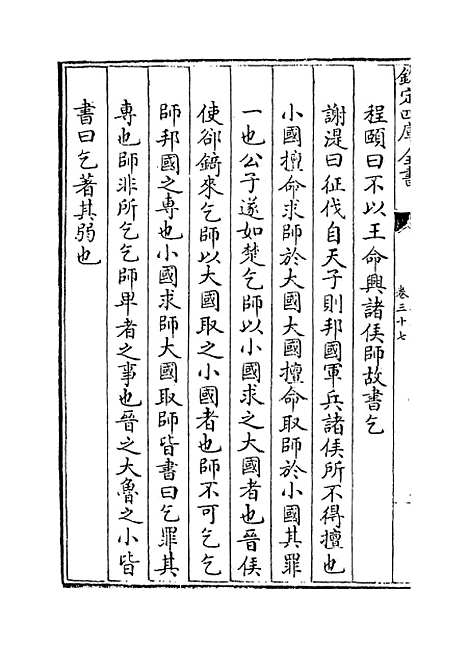 欽定四庫全書
卷三十七
程頤曰不以王命興諸侯師故書乞
謝湜曰征伐自天子則邦國軍兵諸侯所不得擅也
小國擅命求師於大國大國擅命取師於小國其罪
一也公子遂如楚乞師以小國求之大國者也晉侯
使郤錡來乞師以大國取之小國者也師不可乞乞
師邦國之專也小國求師大國取師皆書曰乞罪其
專也師非所乞乞師卑者之事也晉之大魯之小皆
書曰乞著其弱也